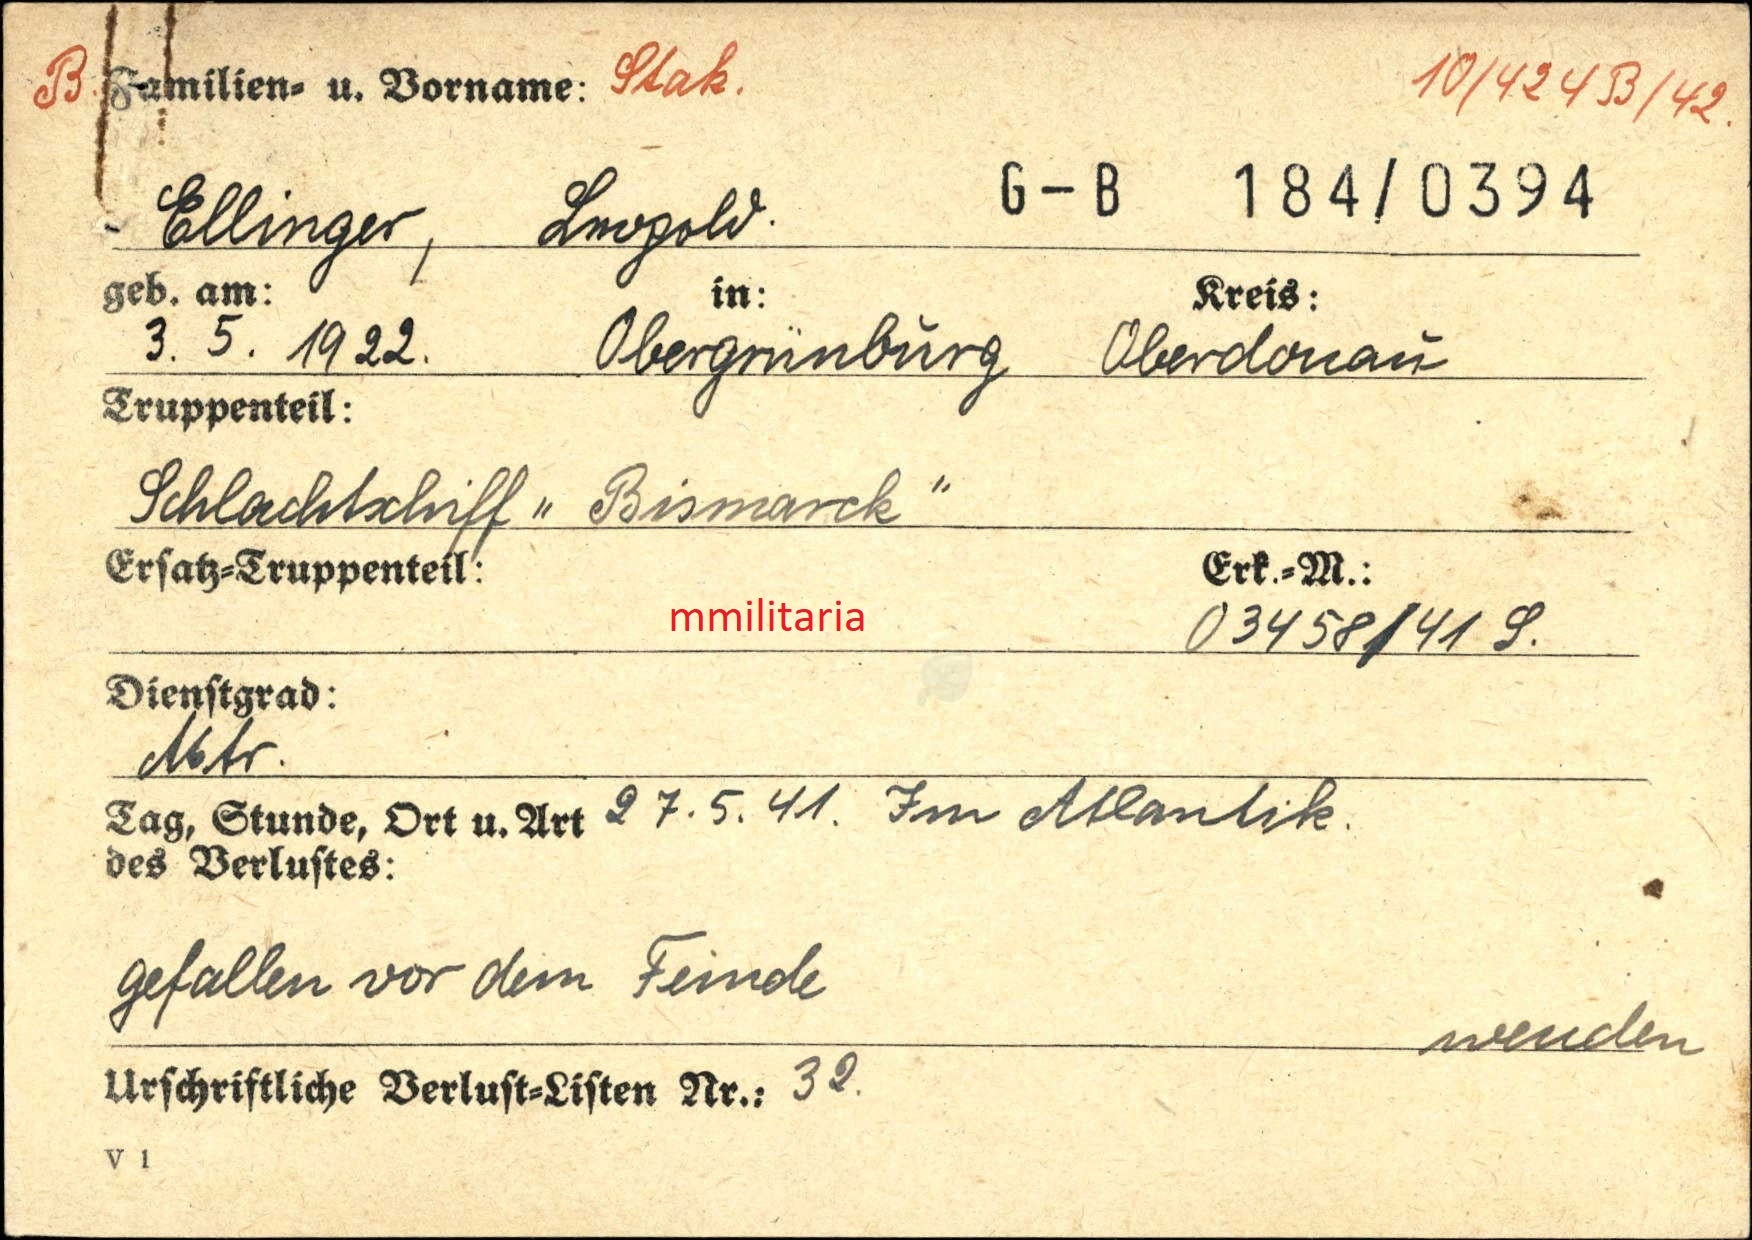 B. Familien- u. Vorname: Stak. 10/424 B/42.
G-B 184/0394
Ellinger, Leopold.
geb. am: in: Kreis:
3. 5. 1922. Obergrünburg Oberdonau
Truppenteil:
Schlachtschiff „Bismarck"
Ersatz-Truppenteil: Erk.-M.:
mmilitaria
03458/41 S.
Dienstgrad:
Mtr.
Tag, Stunde, Ort u. Art 27.5.41. Im Atlantik.
des Verlustes:
gefallen vor dem Feinde
wenden
Urschriftliche Verlust-Listen Nr.: 32.
V 1